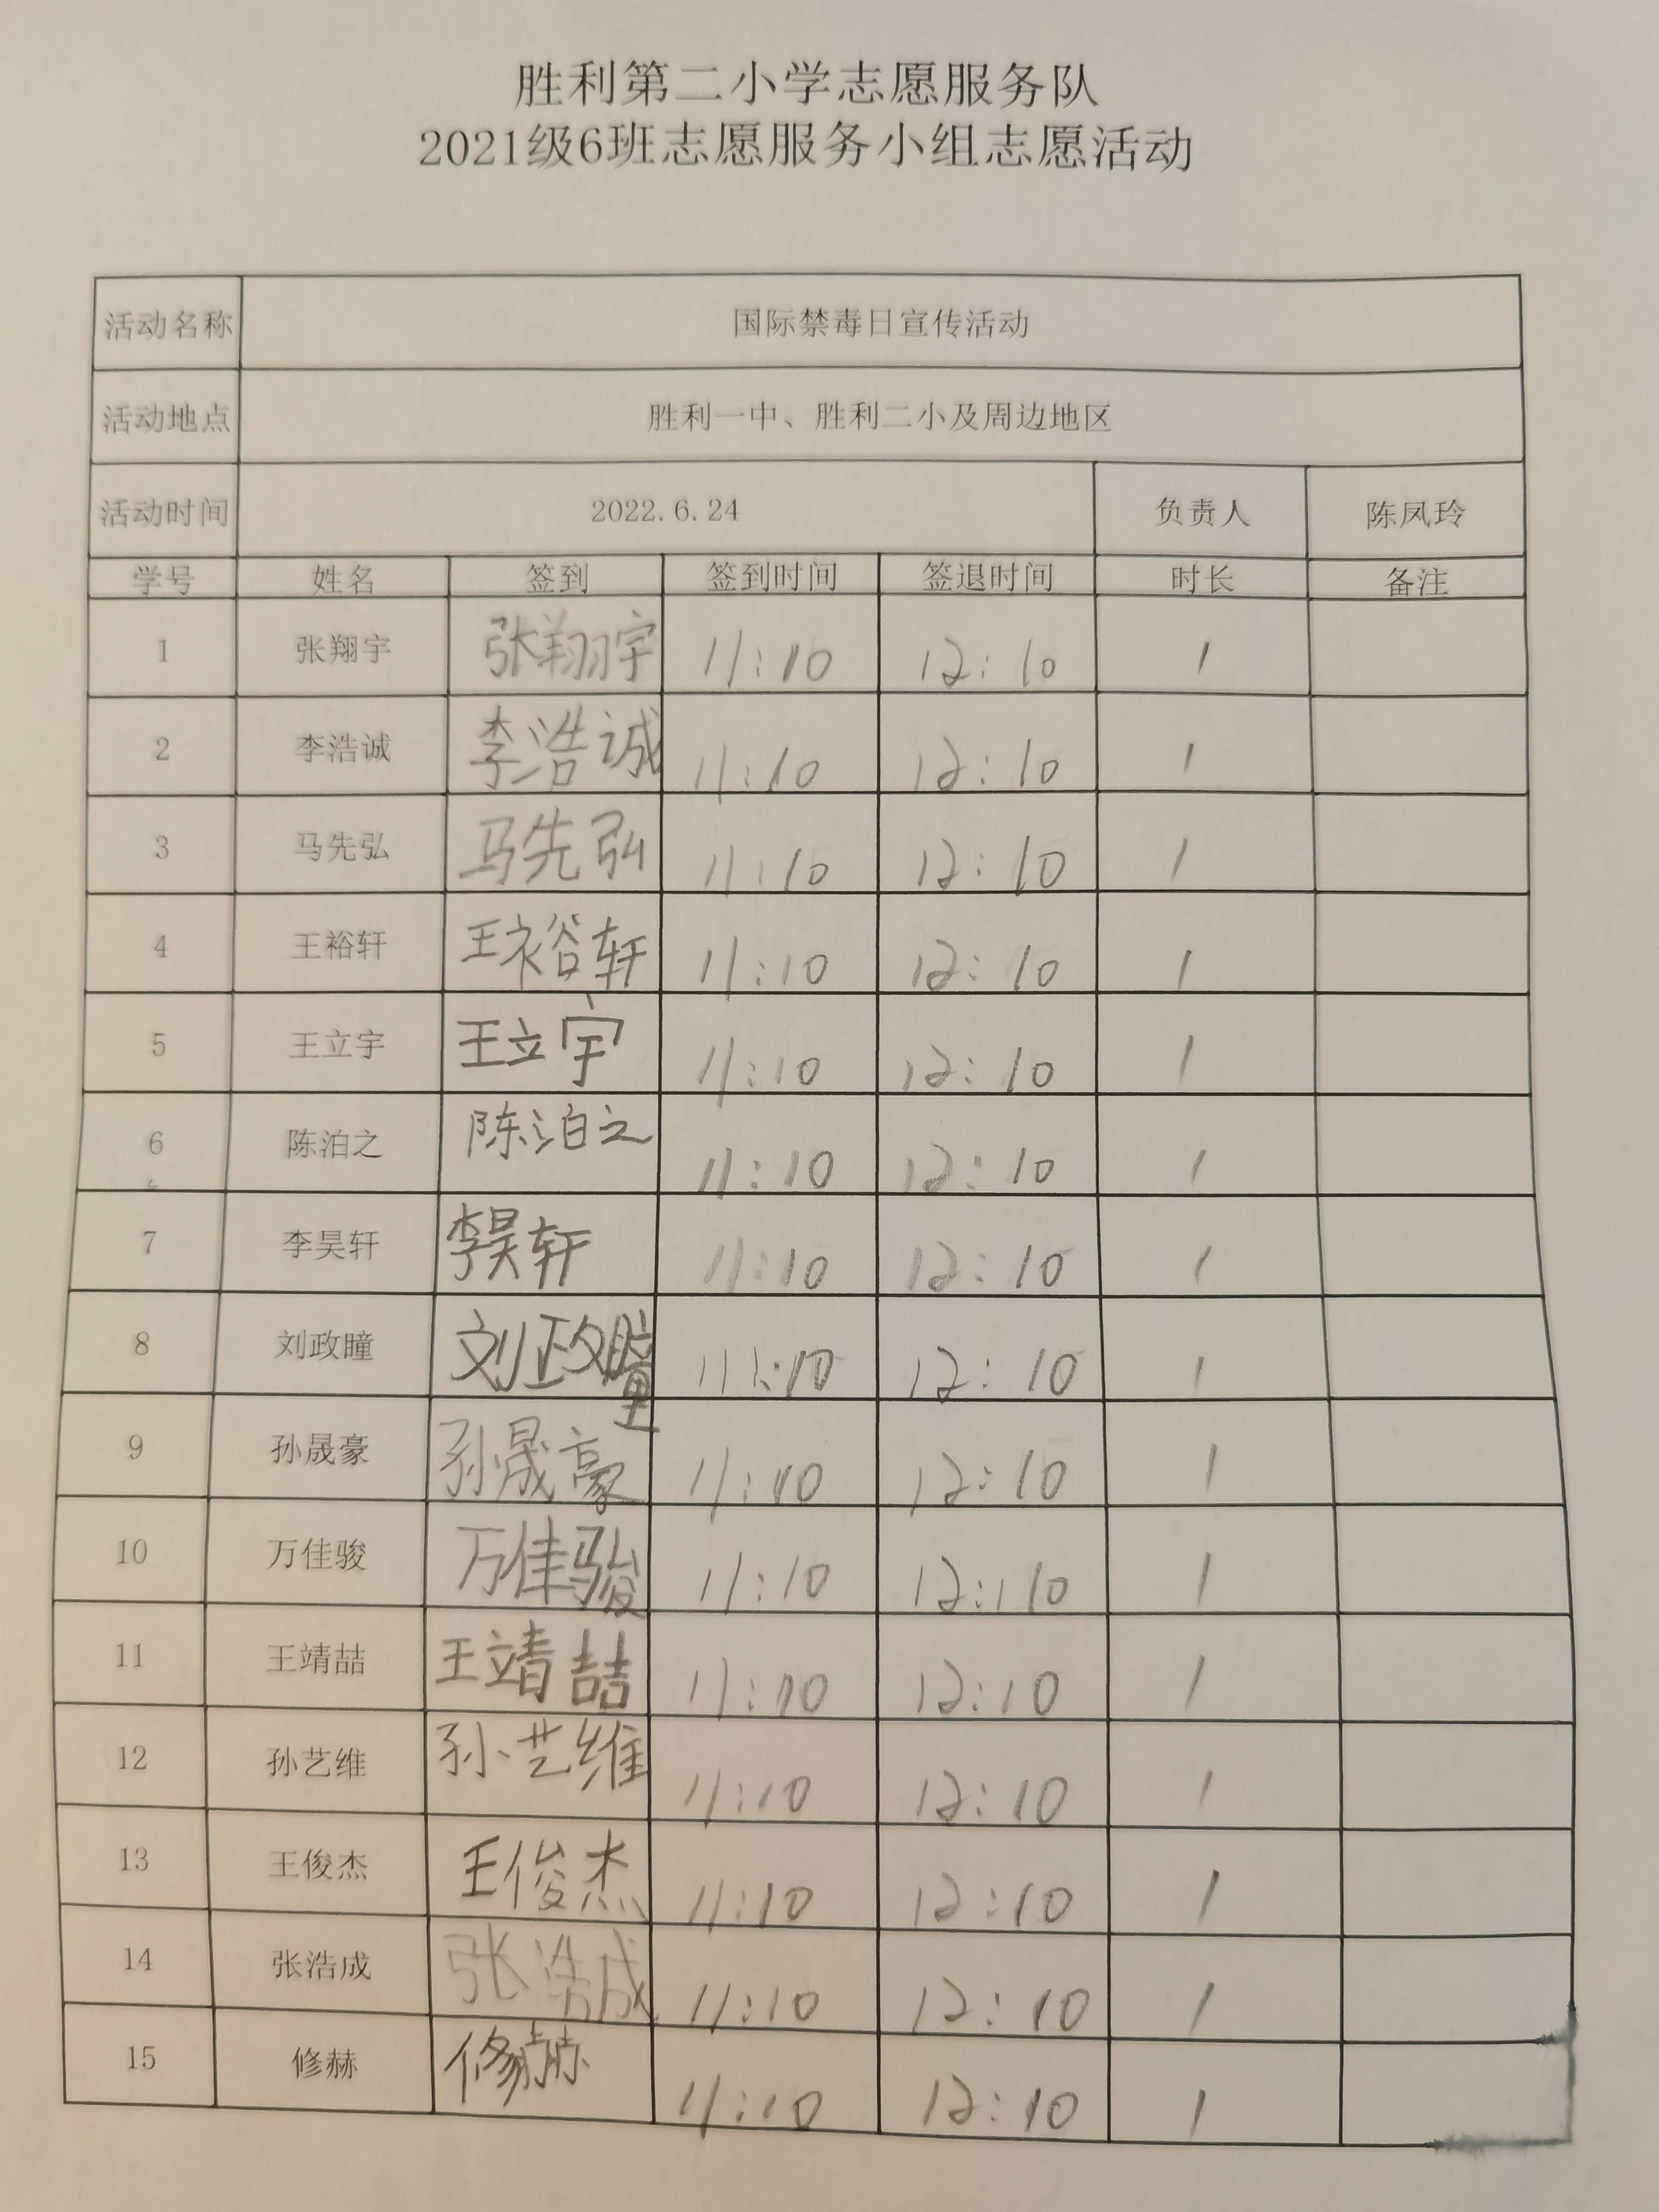 胜利第二小学志愿服务队
2021级6班志愿服务小组志愿活动
活动名称 国际禁毒日宣传活动
活动地点 胜利一中、胜利二小及周边地区
活动时间 2022.6.24 负责人 陈凤玲
学号 姓名 签到 签到时间 签退时间 时长 备注
1 张翔宇 张翔宇 11:10 12:10 1
2 李浩诚 李浩诚 11:10 12:10 1
3 马先弘 马先弘 11:10 12:10 1
4 王裕轩 王裕轩 11:10 12:10 1
5 王立宇 王立宇 11:10 12:10 1
6 陈泊之 陈泊之 11:10 12:10 1
7 李昊轩 李昊轩 11:10 12:10 1
8 刘政瞳 刘政瞳 11:10 12:10 1
9 孙晟豪 孙晟豪 11:10 12:10 1
10 万佳骏 万佳骏 11:10 12:10 1
11 王靖喆 王靖喆 11:10 12:10 1
12 孙艺维 孙艺维 11:10 12:10 1
13 王俊杰 王俊杰 11:10 12:10 1
14 张浩成 张浩成 11:10 12:10 1
15 修赫 修赫 11:10 12:10 1